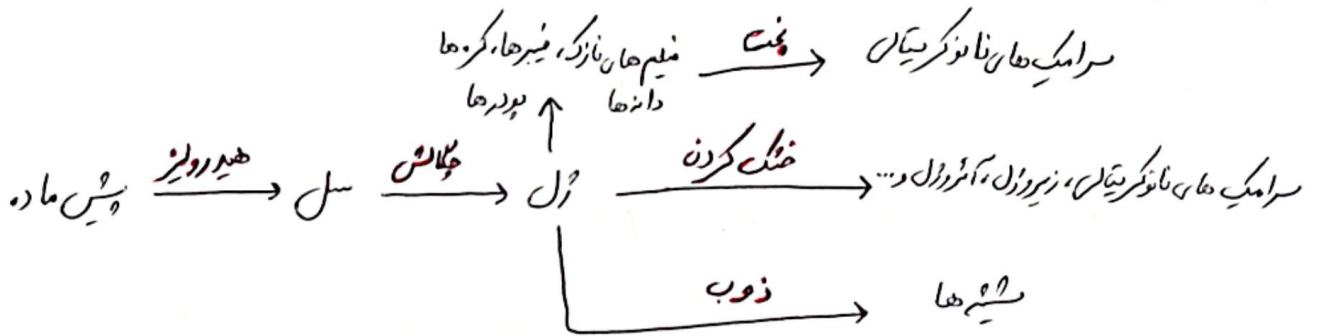 فیلم های نازک، فیبرها، کره ها پخت سرامیک های نانو کریستالی
دانه ها پودرها
پیش ماده هیدرولیز سل چگالش ژل خشک کردن سرامیک های نانو کریستالی، زیروژل، آئروژل و...
ذوب
شیشه ها